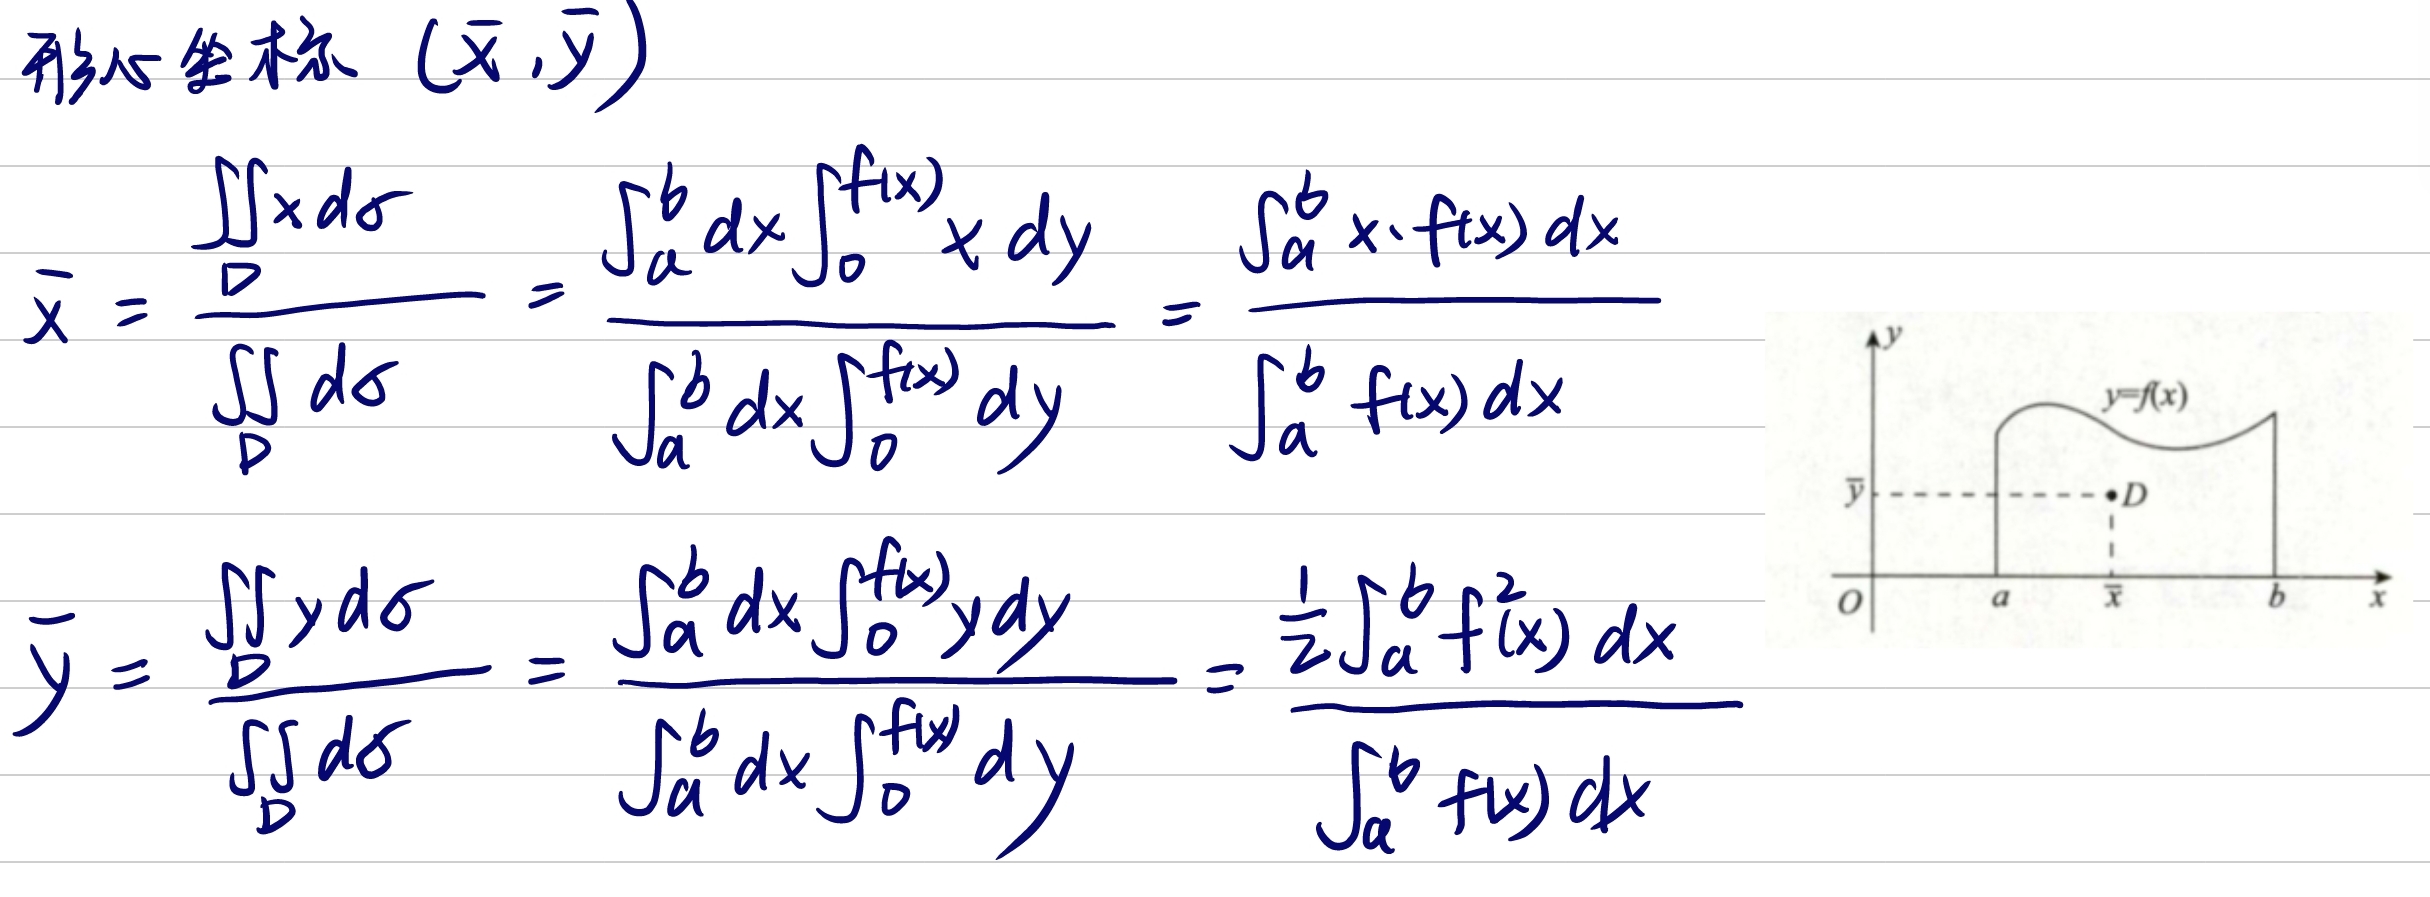 形心坐标 (x̄, ȳ)
x̄ = ∬_D x dσ / ∬_D dσ = ∫_a^b dx ∫_0^{f(x)} x dy / ∫_a^b dx ∫_0^{f(x)} dy = ∫_a^b x·f(x) dx / ∫_a^b f(x) dx
ȳ = ∬_D y dσ / ∬_D dσ = ∫_a^b dx ∫_0^{f(x)} y dy / ∫_a^b dx ∫_0^{f(x)} dy = ½ ∫_a^b f²(x) dx / ∫_a^b f(x) dx
y
y=f(x)
ȳ D
O a x̄ b x